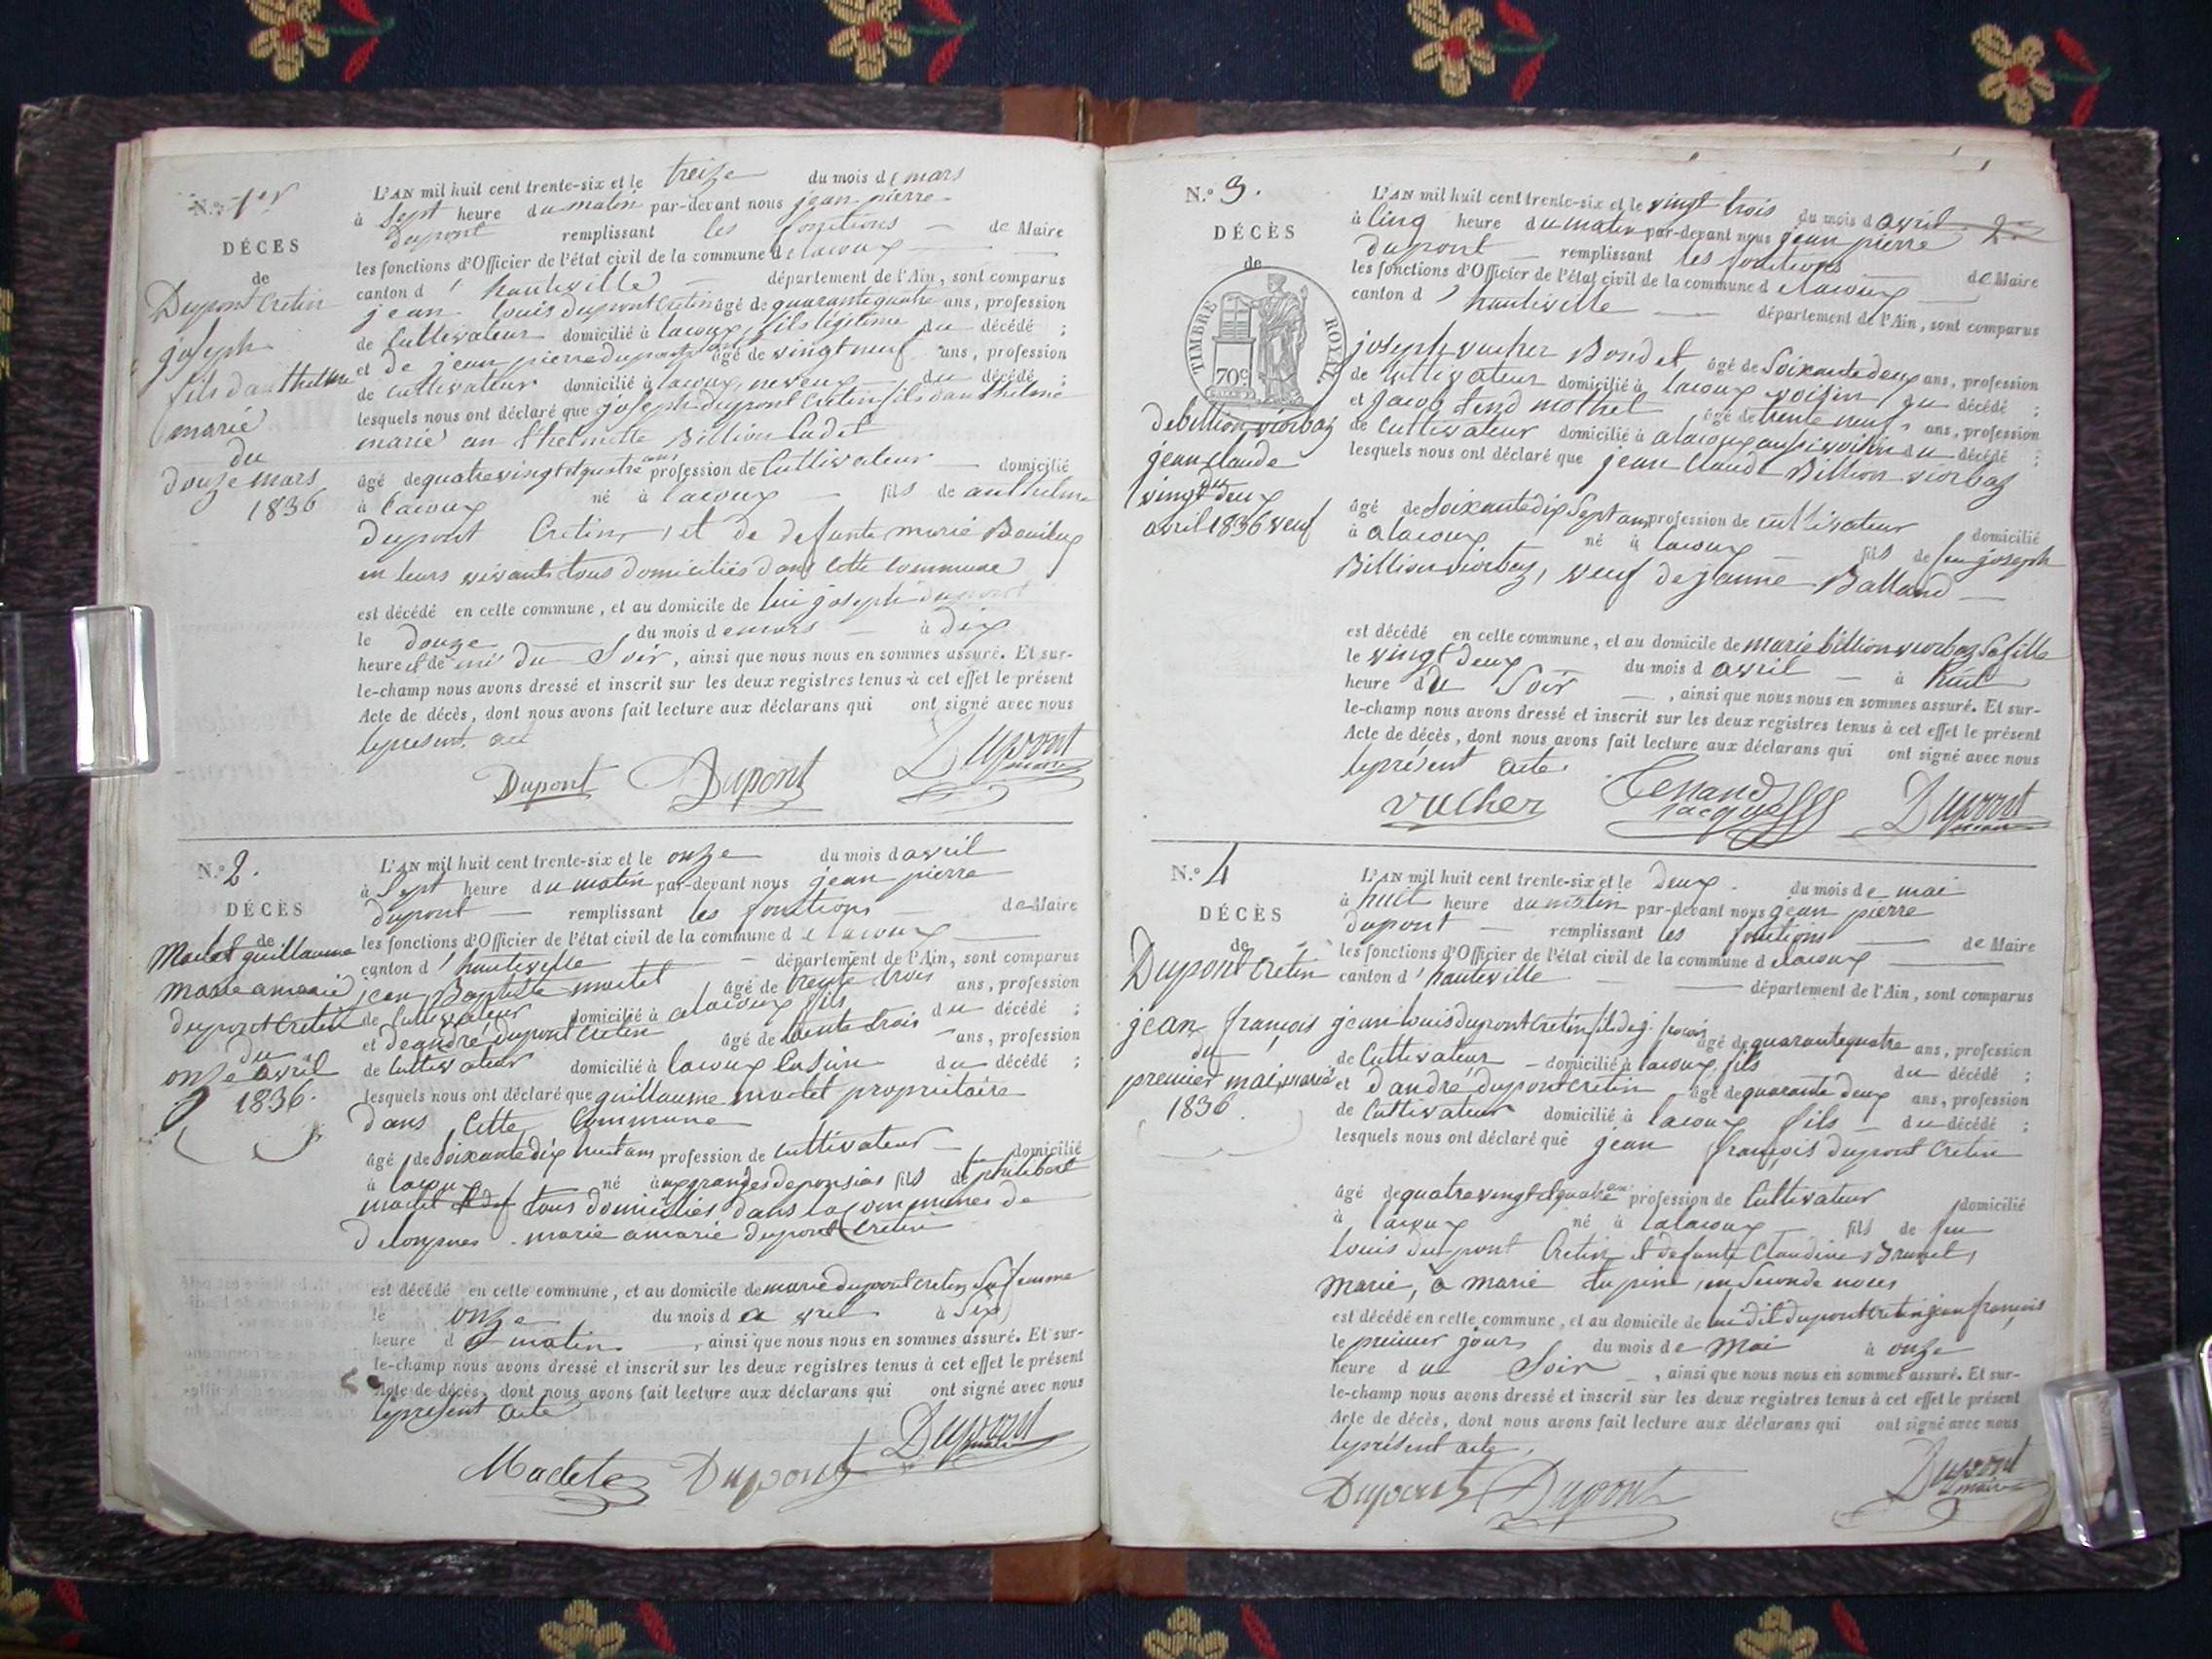 N.º 1er
DÉCÈS
de
Dupont Cretin
joseph
fils d'anthelme
marié
du
douze mars
1836
L'AN mil huit cent trente-six et le treize du mois de mars
à Sept heure du matin par-devant nous jean pierre
dupont remplissant les fonctions de Maire
les fonctions d'Officier de l'état civil de la commune de lacoux
canton d'hauteville département de l'Ain, sont comparus
jean louis dupont Cretin âgé de quarante quatre ans, profession
de Cultivateur domicilié à lacoux, fils légitime du décédé ;
et de jean pierre dupont âgé de vingt neuf ans, profession
de cultivateur domicilié à lacoux, neveux du décédé ;
lesquels nous ont déclaré que joseph dupont Cretin fils d'anthelme
marié an thelmette Billion Cadet
âgé de quatre vingt et quatre ans profession de Cultivateur domicilié
à lacoux né à lacoux fils de anthelme
dupont Cretin, et de defunte marie
en leurs vivants tous domiciliés dans cette commune
est décédé en cette commune, et au domicile de lui joseph dupont
le douze du mois de mars à dix
heure et de mi du Soir, ainsi que nous nous en sommes assuré. Et sur-
le-champ nous avons dressé et inscrit sur les deux registres tenus à cet effet le présent
Acte de décès, dont nous avons fait lecture aux déclarans qui ont signé avec nous
le present
Dupont Dupont Dupont maire
N.º 2.
DÉCÈS
de
Moctet guillaume
marie amarie
dupont Cretin
du
onze avril
1836.
L'AN mil huit cent trente-six et le onze du mois d avril
à Sept heure du matin par-devant nous jean pierre
dupont remplissant les fonctions de Maire
les fonctions d'Officier de l'état civil de la commune de lacoux
canton d'hauteville département de l'Ain, sont comparus
jean Baptiste moctet âgé de trente trois ans, profession
de Cultivateur domicilié à alacoux fils du décédé ;
et de andré dupont Cretin âgé de trente trois ans, profession
de Cultivateur domicilié à lacoux Cusin du décédé ;
lesquels nous ont déclaré que guillaume moctet propriétaire
dans Cette Commune
âgé de Soixante dix huit ans profession de Cultivateur domicilié
à lacoux né aux granges de fils de philibert
moctet tous domiciliés dans la communes de
marie amarie dupont Cretin
est décédé en cette commune, et au domicile de marie dupont Cretin Sa femme
le onze du mois d avril à Six
heure d matin, ainsi que nous nous en sommes assuré. Et sur-
le-champ nous avons dressé et inscrit sur les deux registres tenus à cet effet le présent
Acte de décès, dont nous avons fait lecture aux déclarans qui ont signé avec nous
le present acte
Dupont maire
Moctet Dupont
2.
N.º 3.
DÉCÈS
de
TIMBRE ROYAL.
70c
de billion viorbaz
jean claude
du
vingt deux
avril 1836 veuf
L'AN mil huit cent trente-six et le vingt trois du mois d avril
à Cinq heure du matin par-devant nous jean pierre
dupont remplissant les fonctions de Maire
les fonctions d'Officier de l'état civil de la commune de lacoux
canton d'hauteville département de l'Ain, sont comparus
joseph vucher Bondet âgé de Soixante deux ans, profession
de Cultivateur domicilié à lacoux voisin du décédé ;
et jacob tend mothet âgé de trente neuf ans, profession
de Cultivateur domicilié à alacoux aussi voisin du décédé ;
lesquels nous ont déclaré que jean Claude Billion viorbaz
âgé de Soixante dix Sept ans profession de cultivateur domicilié
à alacoux né à lacoux fils de feu joseph
Billion viorbaz, veuf de jeanne Balland
est décédé en cette commune, et au domicile de marie billion viorbaz Sa fille
le vingt deux du mois d avril à huit
heure du Soir, ainsi que nous nous en sommes assuré. Et sur-
le-champ nous avons dressé et inscrit sur les deux registres tenus à cet effet le présent
Acte de décès, dont nous avons fait lecture aux déclarans qui ont signé avec nous
le présent acte.
vucher Tenand jacques Dupont maire
N.º 4
DÉCÈS
de
Dupont Cretin
jean françois
du
premier mai, marié
1836.
L'AN mil huit cent trente-six et le deux du mois de mai
à huit heure du matin par-devant nous jean pierre
dupont remplissant les fonctions de Maire
les fonctions d'Officier de l'état civil de la commune de lacoux
canton d'hauteville département de l'Ain, sont comparus
jean louis dupont Cretin fils de j. âgé de quarante quatre ans, profession
de Cultivateur domicilié à lacoux, fils du décédé ;
et d'andré dupont cretin âgé de quarante deux ans, profession
de Cultivateur domicilié à lacoux fils du décédé ;
lesquels nous ont déclaré que jean françois dupont Cretin
âgé de quatre vingt et quatre ans profession de Cultivateur domicilié
à lacoux né à lalacoux fils de feu
louis dupont Cretin et defunte Claudine Brunet,
marié, à marie tupine, en Seconde noces
est décédé en cette commune, et au domicile de lui dit dupont cretin jean françois
le premier jours du mois de Mai à onze
heure du Soir, ainsi que nous nous en sommes assuré. Et sur-
le-champ nous avons dressé et inscrit sur les deux registres tenus à cet effet le présent
Acte de décès, dont nous avons fait lecture aux déclarans qui ont signé avec nous
le présent acte,
Dupont Dupont Dupont maire